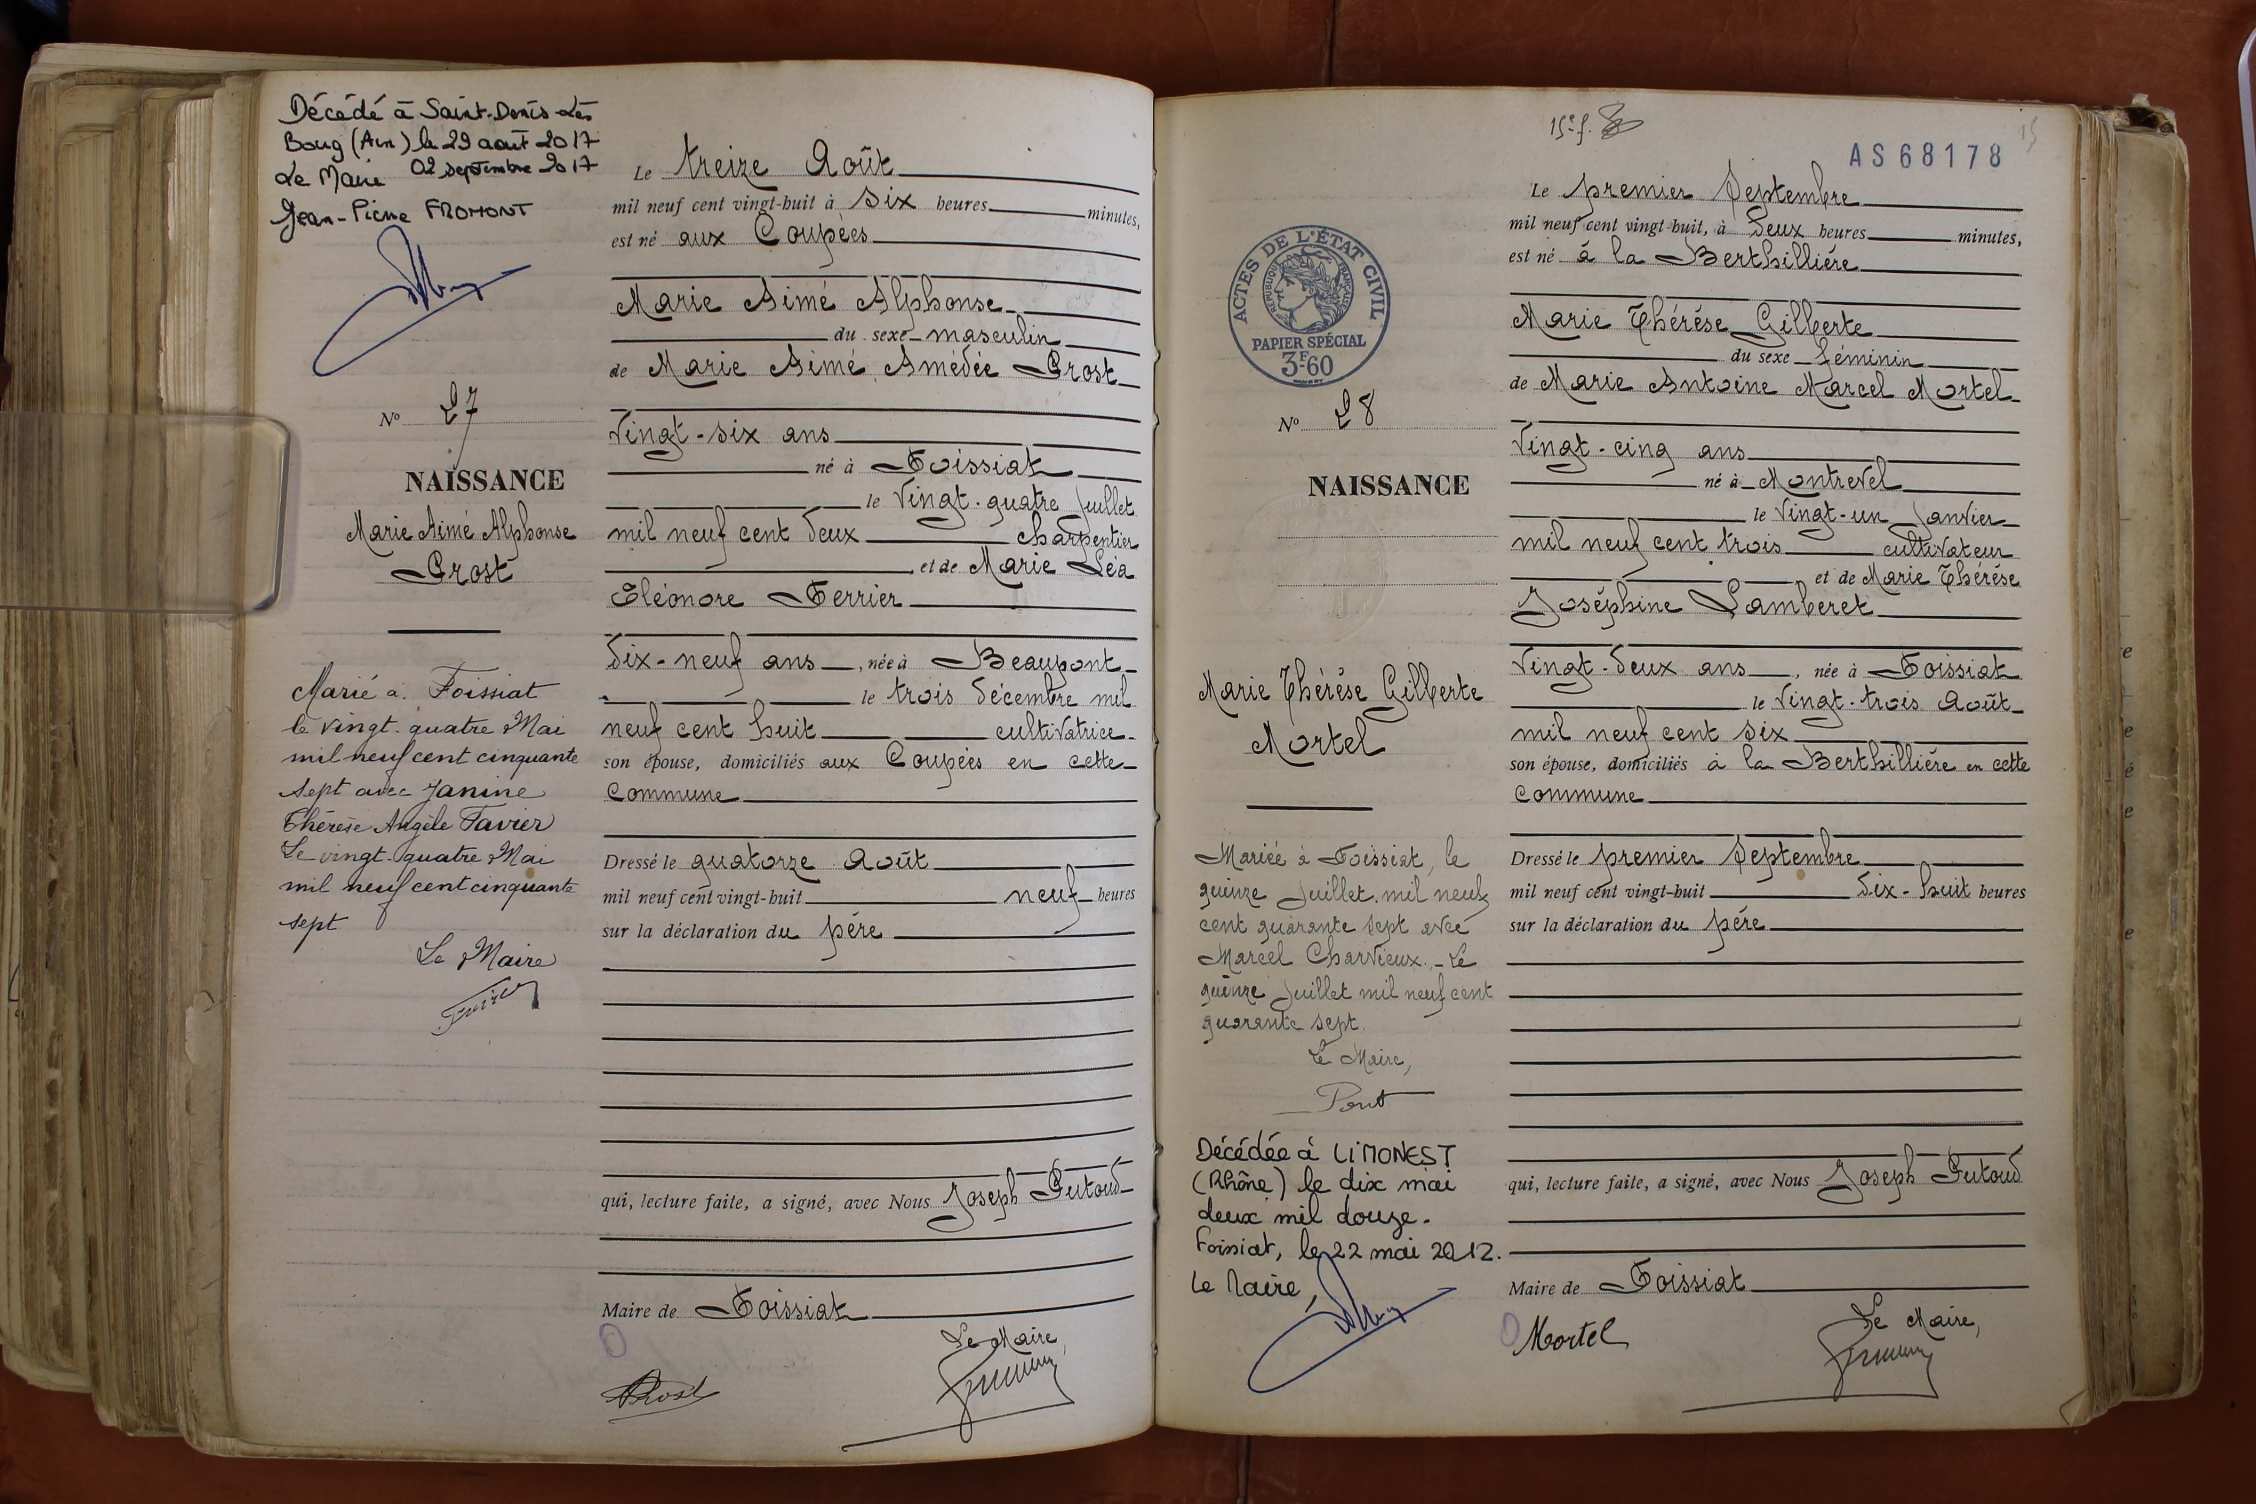 Décédé à Saint-Denis-Lès
Bourg (Ain) le 29 août 2017
Le Maire 02 septembre 2017
Jean-Pierre FROMONT
N° 27
NAISSANCE
Marie Aimé Alphonse
Prost
Marié à Foissiat
le vingt-quatre Mai
mil neuf cent cinquante
sept avec Janine
Thérèse Angèle Favier
Le vingt-quatre Mai
mil neuf cent cinquante
sept
Le Maire
Le treize Août
mil neuf cent vingt-huit à six heures minutes,
est né aux Coupées
Marie Aimé Alphonse
du sexe masculin
de Marie Aimé Amédée Prost
Vingt-six ans
né à Foissiat
le Vingt-quatre Juillet
mil neuf cent deux charpentier
et de Marie Léa
Eléonore Ferrier
dix-neuf ans, née à Beaupont
le trois décembre mil
neuf cent huit cultivatrice
son épouse, domiciliés aux Coupées en cette
Commune
Dressé le quatorze Août
mil neuf cent vingt-huit neuf heures
sur la déclaration du père
qui, lecture faite, a signé, avec Nous Joseph Putoud
Maire de Foissiat
Le Maire,
Prost
15e f.
15
AS68178
ACTES DE L'ÉTAT CIVIL
RÉPUBLIQUE FRANÇAISE
PAPIER SPÉCIAL
3F60
N° 28
NAISSANCE
Marie Thérèse Gilberte
Mortel
Mariée à Foissiat, le
quinze Juillet mil neuf
cent quarante sept avec
Marcel Charvieux. - Le
quinze Juillet mil neuf cent
quarante sept.
Le Maire,
Pont
Décédée à LIMONEST
(Rhône) le dix mai
deux mil douze.
Foissiat, le 22 mai 2012.
Le Maire,
Le premier Septembre
mil neuf cent vingt-huit, à deux heures minutes,
est né à la Berthillière
Marie Thérèse Gilberte
du sexe féminin
de Marie Antoine Marcel Mortel
Vingt-cinq ans
né à Montrevel
le Vingt-un Janvier
mil neuf cent trois cultivateur
et de Marie Thérèse
Joséphine Lamberet
Vingt-deux ans, née à Foissiat
le Vingt-trois Août
mil neuf cent six
son épouse, domiciliés à la Berthillière en cette
Commune
Dressé le premier Septembre
mil neuf cent vingt-huit dix-huit heures
sur la déclaration du père
qui, lecture faite, a signé, avec Nous Joseph Putoud
Maire de Foissiat
Le Maire,
Mortel